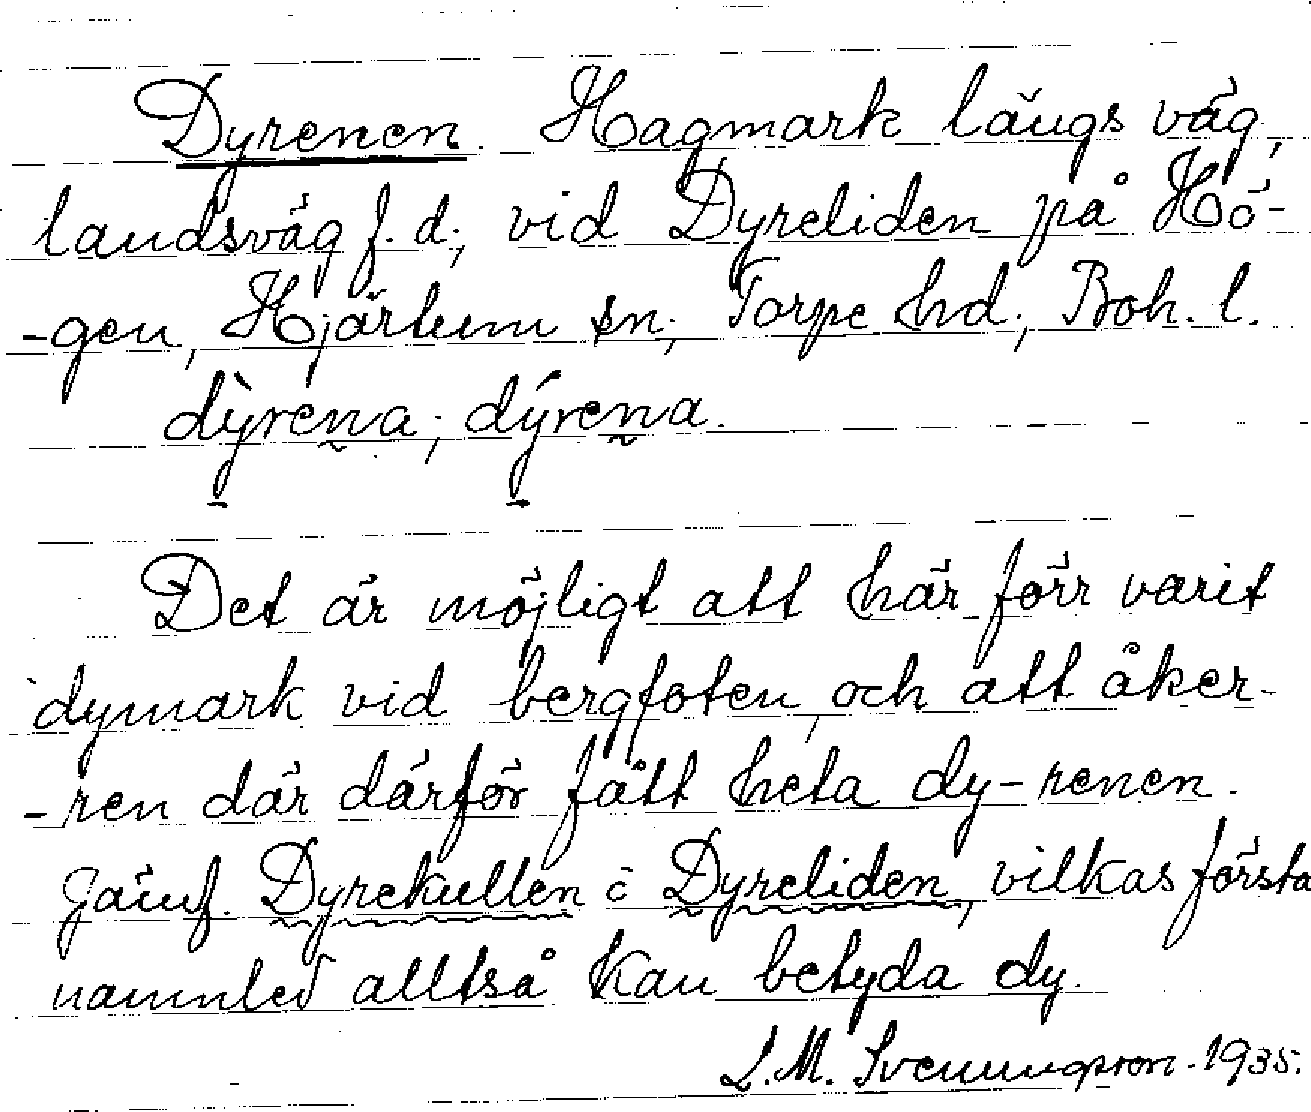 Dyrenen. Hagmark längs väg,
landsväg f. d., vid Dyreliden på Hö-
-gen, Hjärtum sn, Torpe hd, Boh. l.
dỳrena, dýrena.
Det är möjligt att här förr varit
dymark vid bergfoten, och att åker-
-ren där därför fått heta dy-renen.
Jämf. Dyrekullen o Dyreliden, vilkas första
namnled alltså kan betyda dy.
L. M. Svenungsson. 1935.